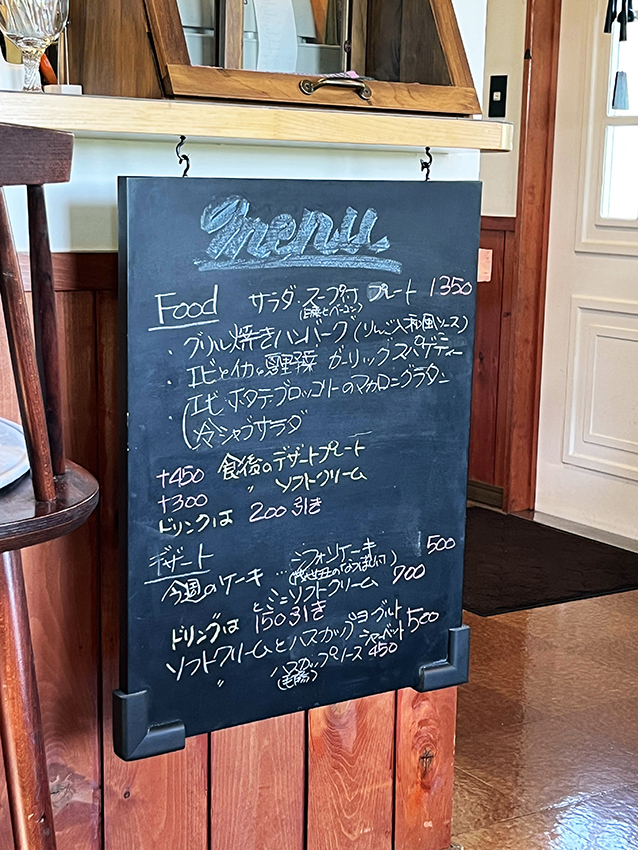 menu
Food サラダ・スープ付 プレート 1350
・グリル焼きハンバーグ(りんご入和風ソース)
・エビとイカと野菜 ガーリックスパゲティー
エビ・ホタテ・ブロッコリーのマカロニグラタン
冷シャブサラダ
+450 食後のデザートプレート
+300 〃 ソフトクリーム
ドリンクは 200引き
デザート
今週のケーキ … シフォンケーキ 500
ミニソフトクリーム 700
ドリンクは 150引き
ソフトクリームとハスカップヨーグルトシャーベット 500
〃 ハスカップソース 450